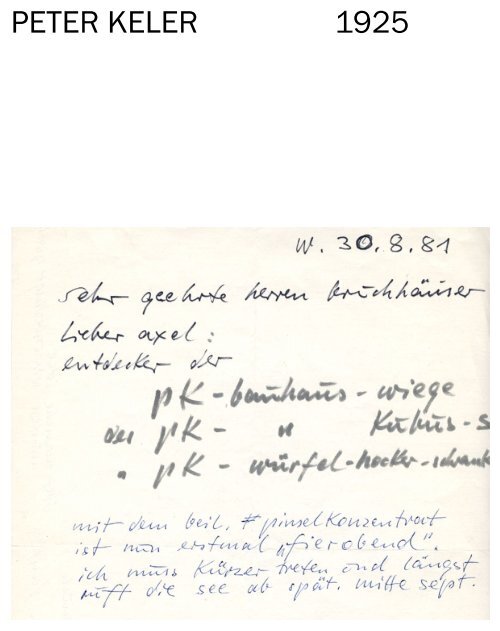 PETER KELER 1925
w. 30.8.81
sehr geehrte herren bruchhäuser
lieber axel:
entdecker der
pK-bauhaus-wiege
der pK- " Kubus-s
" pK- würfel-hocker-schrank
mit dem beil. # pinselkonzentrat
ist nun erstmal „fierobend".
ich muss Kürzer treten und längst
ruft die see ab spät. mitte sept.